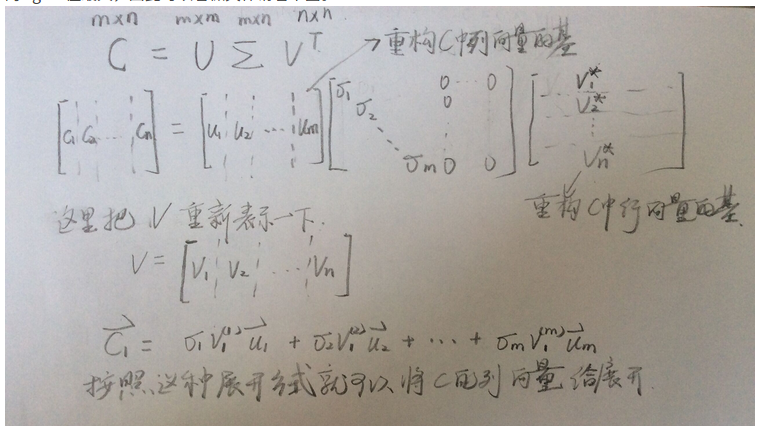 m×n m×m m×n n×n
C = U Σ V^T → 重构C中列向量的基
[C₁ C₂ ... Cn] = [u₁ u₂ ... um] [σ₁ σ₂ σm 0 ... 0 0 0 0] [V₁* V₂* ⋮ Vn*]
重构C中行向量的基
这里把 V 重新表示一下.
V = [V₁ V₂ ... Vn]
C₁ = σ₁V₁⁽¹⁾u₁ + σ₂V₁⁽²⁾u₂ + ... + σmV₁⁽ᵐ⁾um
按照这种展开方式就可以将C的列向量给展开